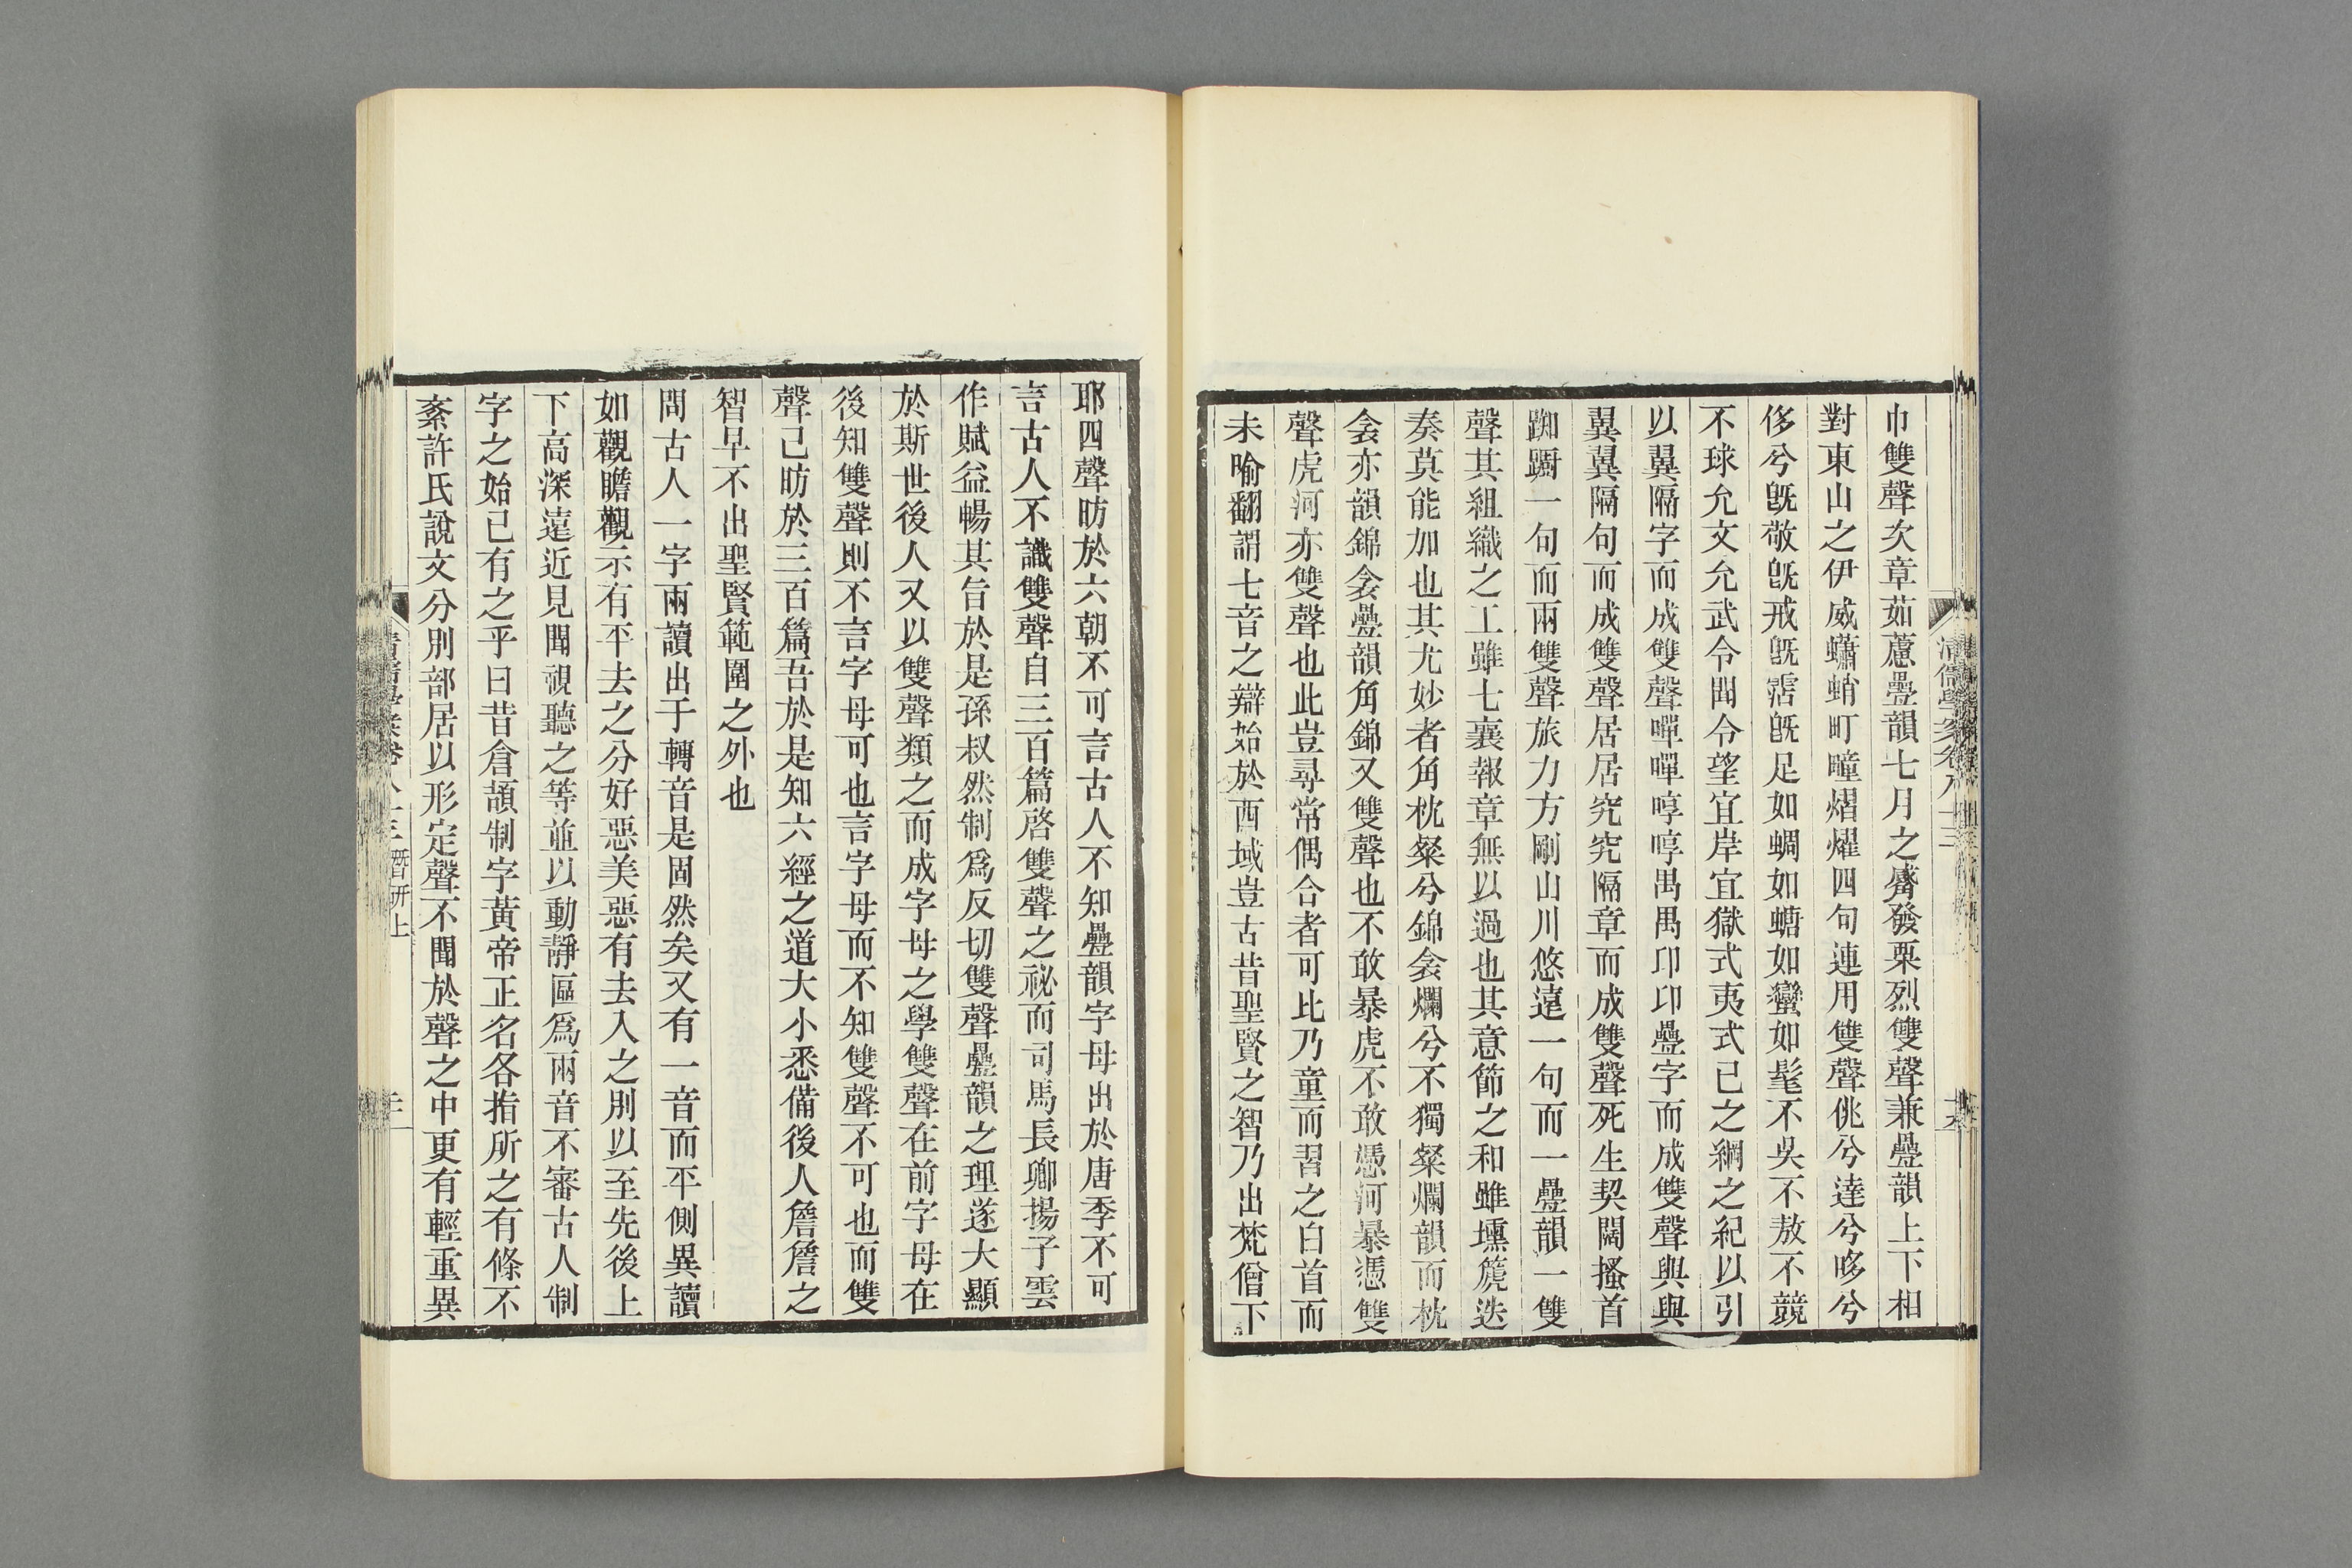 巾雙聲次章茹藘疊韻七月之觱發栗烈雙聲兼疊韻上下相
對東山之伊威蠨蛸町疃熠燿四句連用雙聲佻兮達兮哆兮
侈兮旣敬旣戒旣霑旣足如蜩如螗如蠻如髦不吳不敖不競
不球允文允武令聞令望宜岸宜獄式夷式已之綱之紀以引
以翼隔字而成雙聲嘽嘽啍啍禺禺卬卬疊字而成雙聲與與
翼翼隔句而成雙聲居居究究隔章而成雙聲死生契闊搔首
踟躕一句而兩雙聲旅力方剛山川悠遠一句而一疊韻一雙
聲其組織之工雖七襄報章無以過也其意節之和雖壎篪迭
奏莫能加也其尤妙者角枕粲兮錦衾爛兮不獨粲爛韻而枕
衾亦韻錦衾疊韻角錦又雙聲也不敢暴虎不敢憑河暴憑雙
聲虎河亦雙聲也此豈尋常偶合者可比乃童而習之白首而
未喻翻謂七音之辯始於西域豈古昔聖賢之智乃出梵僧下
清儒學案卷八十三
耶四聲昉於六朝不可言古人不知疊韻字母出於唐季不可
言古人不識雙聲自三百篇啓雙聲之祕而司馬長卿揚子雲
作賦益暢其旨於是孫叔然制爲反切雙聲疊韻之理遂大顯
於斯世後人又以雙聲類之而成字母之學雙聲在前字母在
後知雙聲則不言字母可也言字母而不知雙聲不可也而雙
聲已昉於三百篇吾於是知六經之道大小悉備後人詹詹之
智早不出聖賢範圍之外也
問古人一字兩讀出于轉音是固然矣又有一音而平側異讀
如觀瞻觀示有平去之分好惡美惡有去入之別以至先後上
下高深遠近見聞視聽之等並以動靜區爲兩音不審古人制
字之始已有之乎曰昔倉頡制字黃帝正名各指所之有條不
紊許氏說文分別部居以形定聲不聞於聲之中更有輕重異
清儒學案卷八十三潛研上